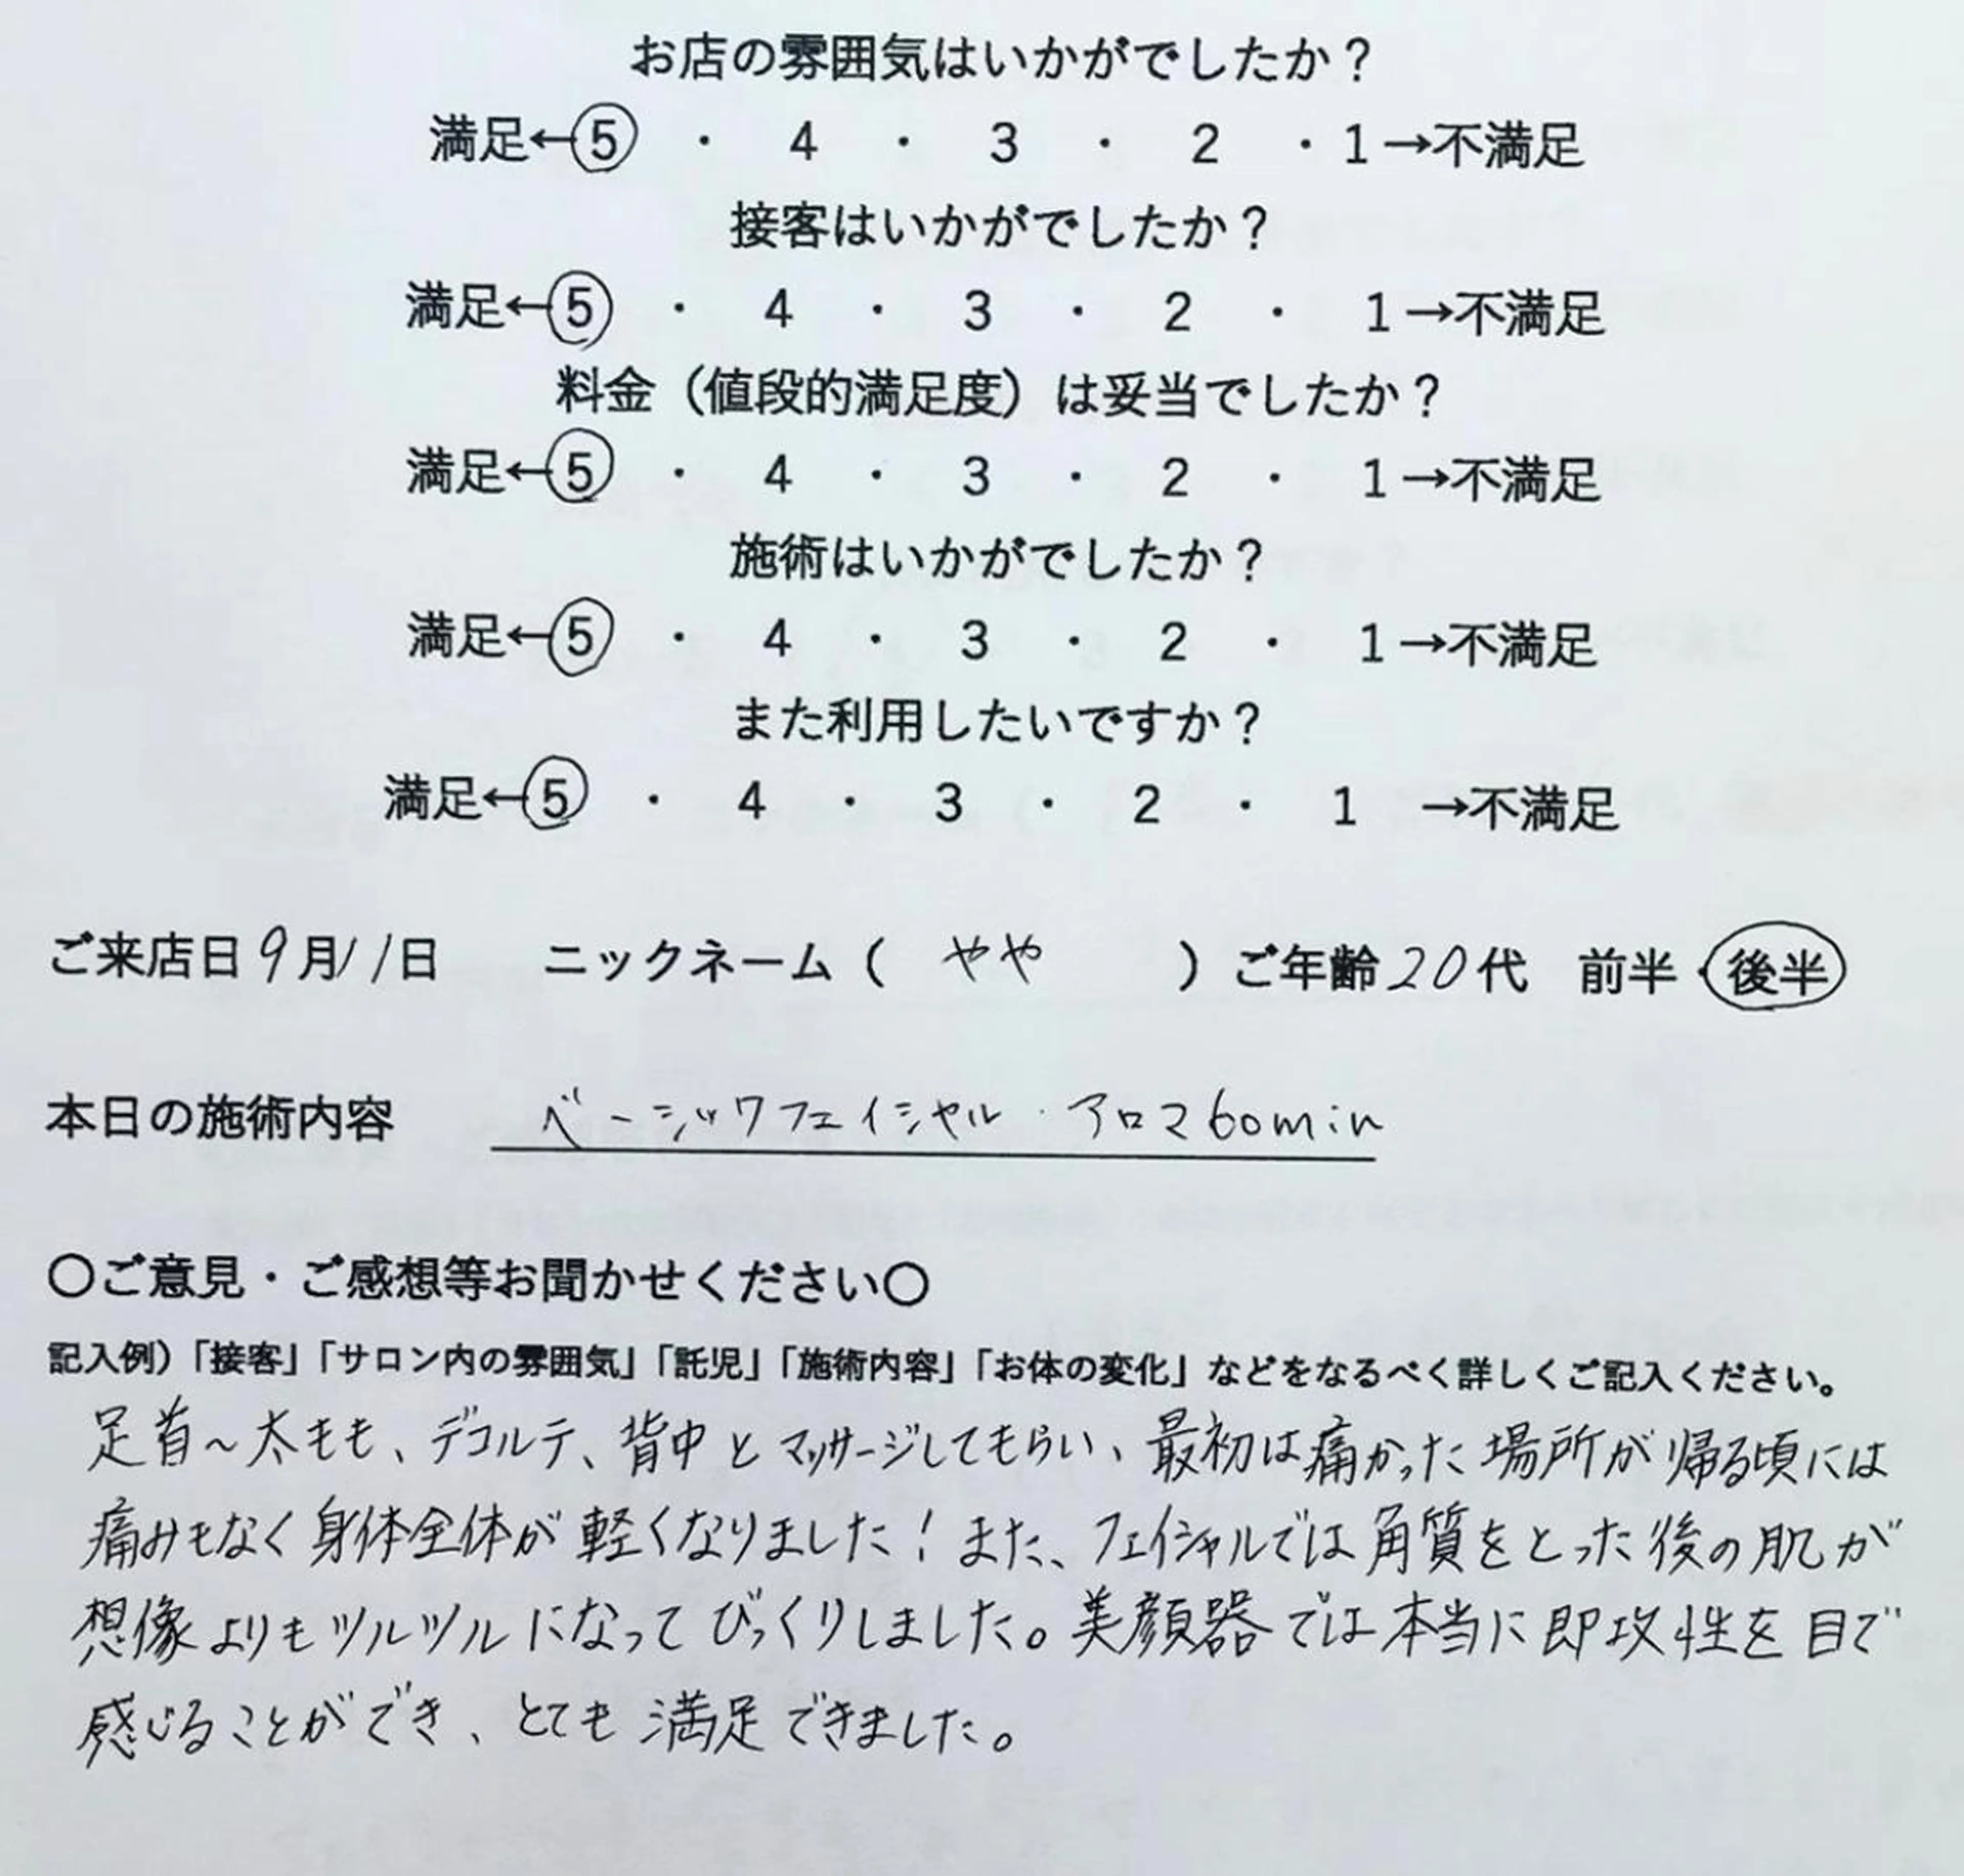 お店の雰囲気はいかがでしたか？
満足←5 ・ 4 ・ 3 ・ 2 ・ 1→不満足
接客はいかがでしたか？
満足←5 ・ 4 ・ 3 ・ 2 ・ 1→不満足
料金（値段的満足度）は妥当でしたか？
満足←5 ・ 4 ・ 3 ・ 2 ・ 1→不満足
施術はいかがでしたか？
満足←5 ・ 4 ・ 3 ・ 2 ・ 1→不満足
また利用したいですか？
満足←5 ・ 4 ・ 3 ・ 2 ・ 1 →不満足
ご来店日9月11日 ニックネーム（ やや ）ご年齢20代 前半・後半
本日の施術内容 ベーシックフェイシャル・アロマ60min
〇ご意見・ご感想等お聞かせください〇
記入例）「接客」「サロン内の雰囲気」「託児」「施術内容」「お体の変化」などをなるべく詳しくご記入ください。
足首〜太もも、デコルテ、背中とマッサージしてもらい、最初は痛かった場所が帰る頃には
痛みもなく身体全体が軽くなりました！また、フェイシャルでは角質をとった後の肌が
想像よりもツルツルになってびっくりしました。美顔器では本当に即攻性を目で
感じることができ、とても満足できました。